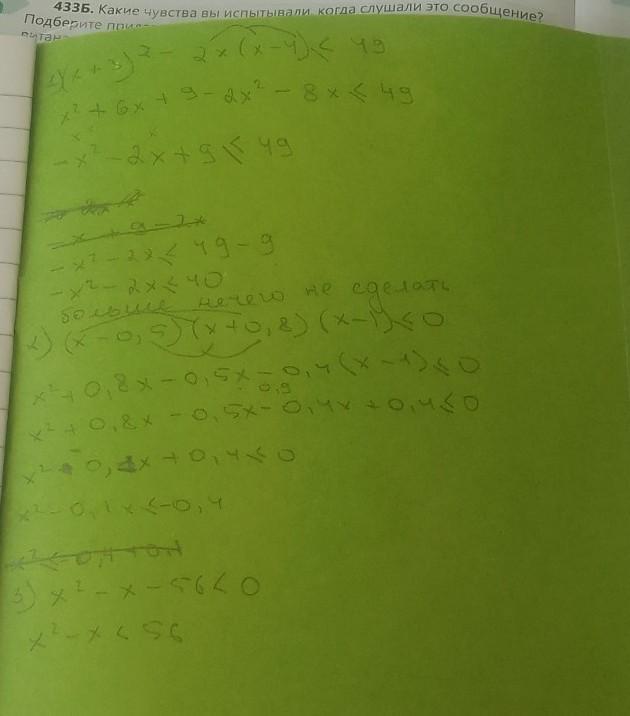 433Б. Какие чувства вы испытывали, когда слушали это сообщение?
Подберите
1) (x + 3)² - 2x(x-4) ≤ 49
x² + 6x + 9 - 2x² - 8x ≤ 49
-x² - 2x + 9 ≤ 49
-x² - 2x ≤ 49 - 9
-x² - 2x ≤ 40
больше нечего не сделать
2) (x - 0,5)(x+0,8)(x-1) ≤ 0
x² + 0,8x - 0,5x - 0,4(x - 1) ≤ 0
x² + 0,8x - 0,5x - 0,4x + 0,4 ≤ 0
x² - 0,1x + 0,4 ≤ 0
x² - 0,1x ≤ -0,4
3) x² - x - 56 < 0
x² - x < 56